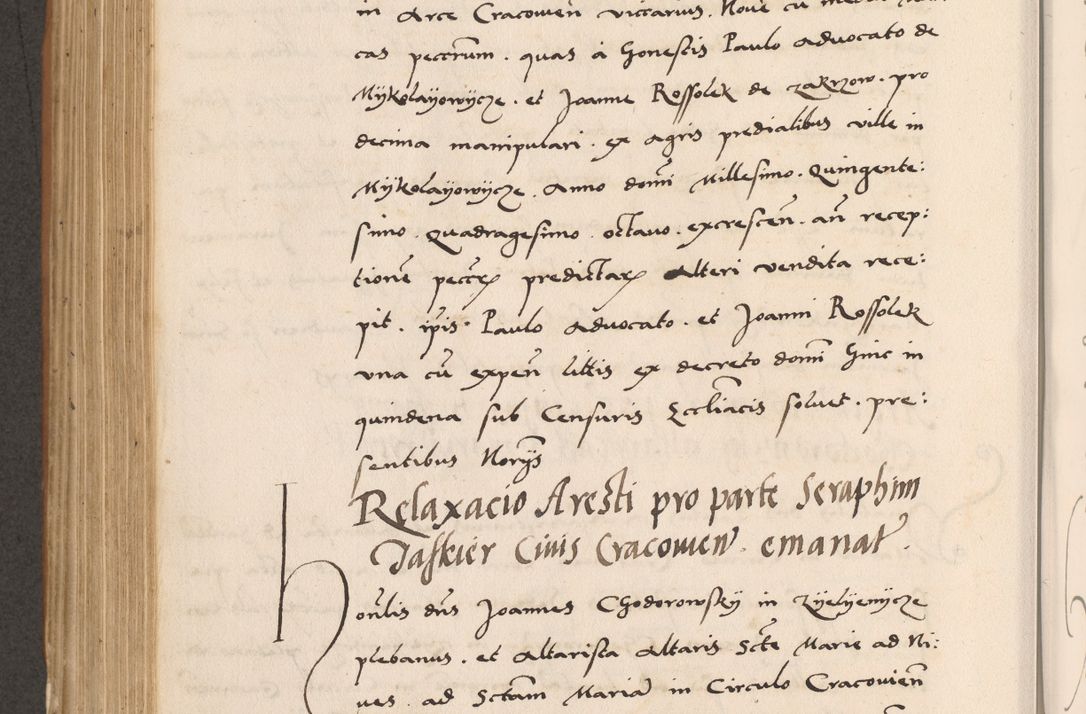 in Arce Cracowień viccarius. Nove cū
cas pecc̄rum. quas à honestis Paulo Advocato de
Mykolayowycze. et Joanne Rossolek de zakrzow. pro
decima manipulari. ex agris predialibus ville in
Mykolayowycze. Anno dom̄i Millesimo. Quingente:
simo. Quadragesimo. octavo. excrescen̄. an̄ recep:
tionē pecc̄rx predictarx alteri vendita rece:
pit. ip̄is. Paulo Advocato. et Joanni Rossolek
una cū expen̄ littis ex decreto domī hinc in
quindena sub Censuris Eccl̄iacis solvet. pre:
sentibus Norījs
Relaxacio Aresti pro parte Seraphini
Jaskier Civis Cracowien̄. emanat̄.
honīlis dn̄s Joannes Chodorowsky in zyelyenycze
plebanus. et Altarista altaris Sc̄te Marie ad Ni:
ves. ad Sctam̄ Mariā in Circulo Cracovien̄